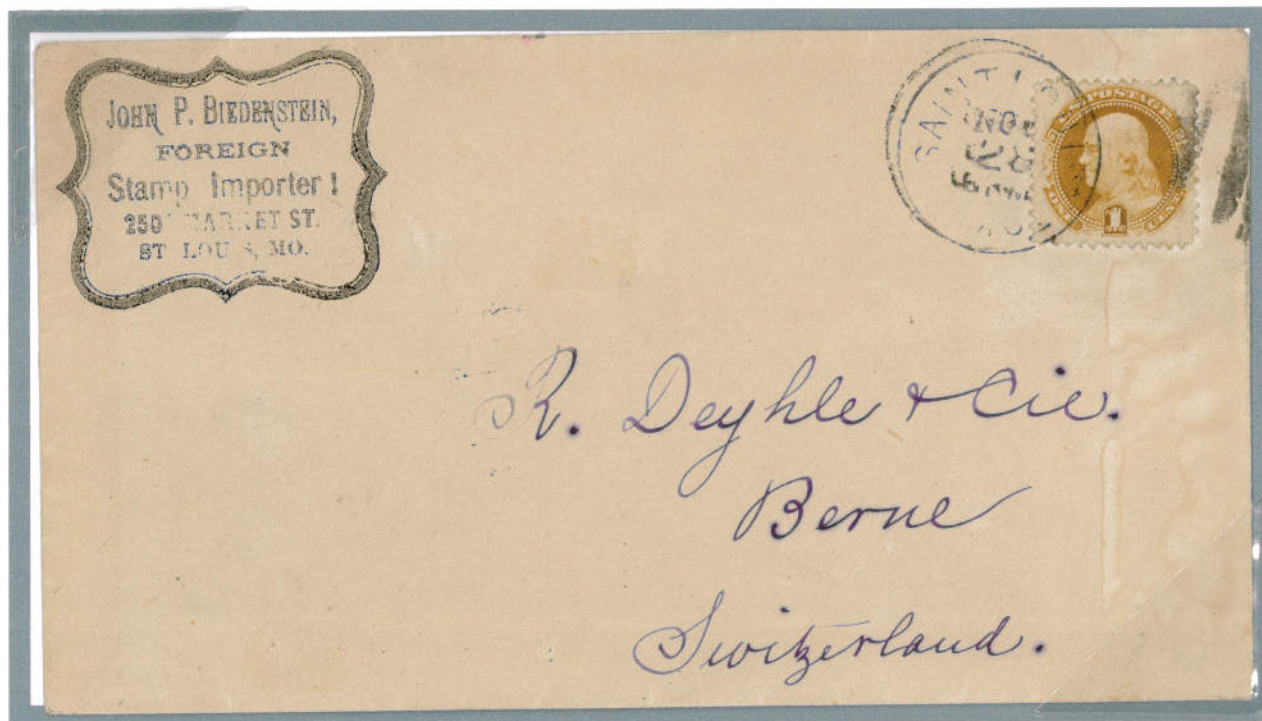 JOHN P. BIEDENSTEIN,
FOREIGN
Stamp Importer!
MARKET ST.
ST. LOUIS, MO.
SAINT
NOV
28
MO.
U.S. POSTAGE
ONE 1 CENT
R. Deyhle & Cie.
Berne
Switzerland.